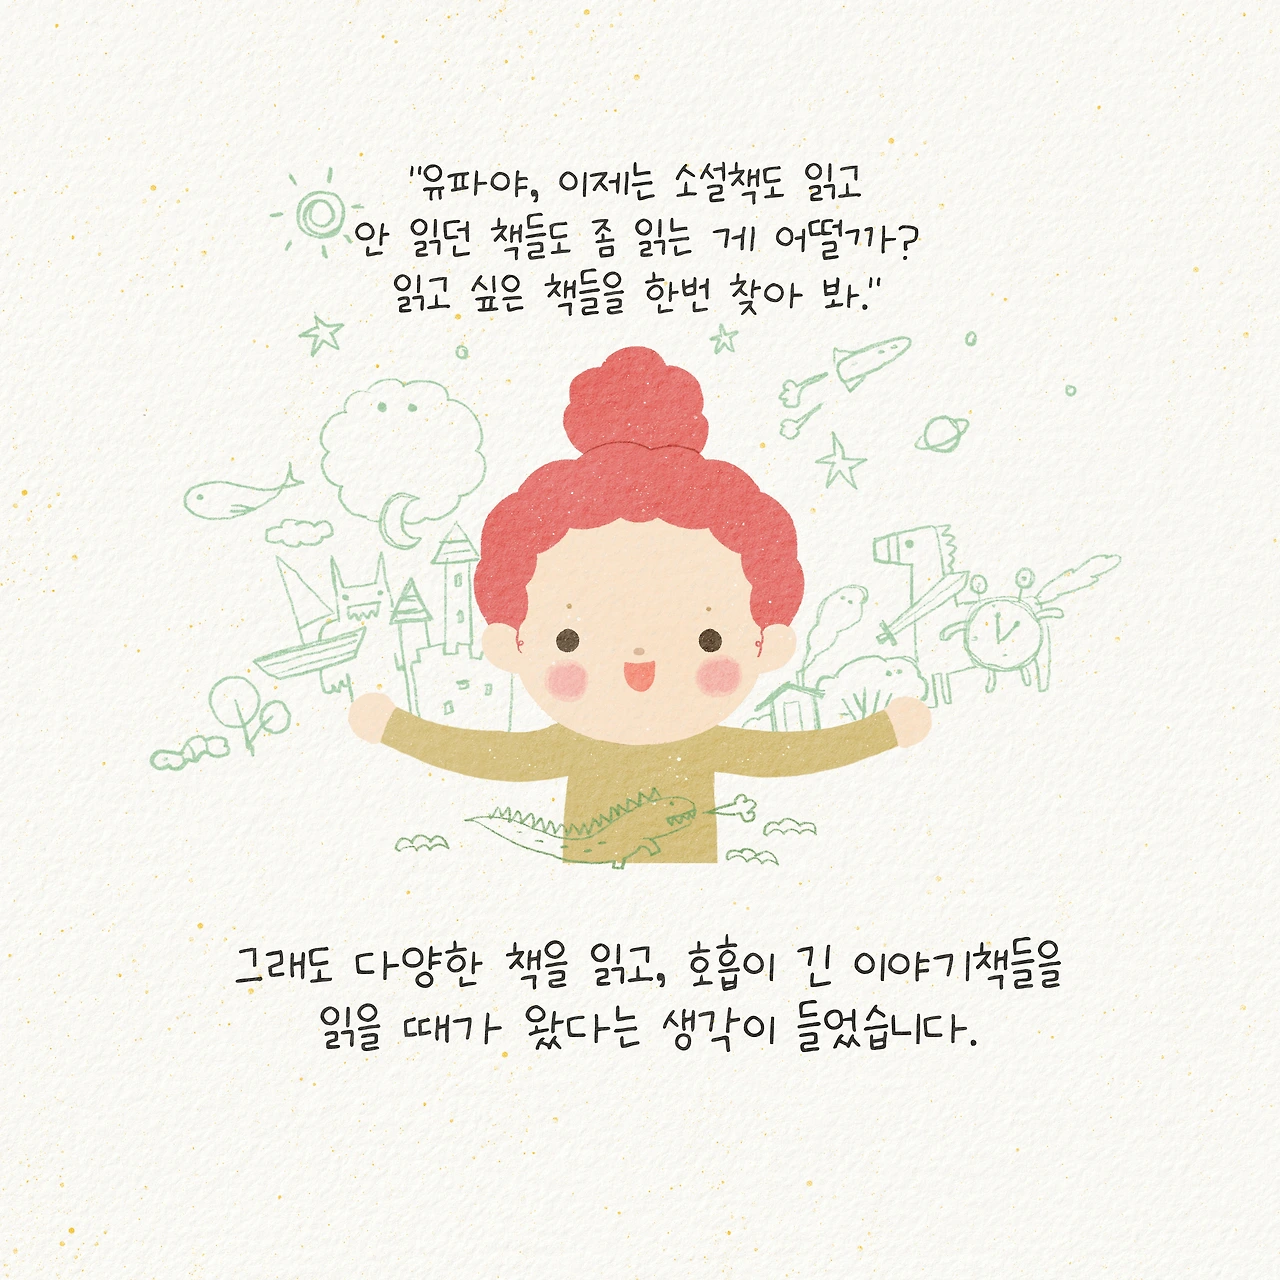 "유파야, 이제는 소설책도 읽고
안 읽던 책들도 좀 읽는 게 어떨까?
읽고 싶은 책들을 한번 찾아 봐."
그래도 다양한 책을 읽고, 호흡이 긴 이야기책들을
읽을 때가 왔다는 생각이 들었습니다.